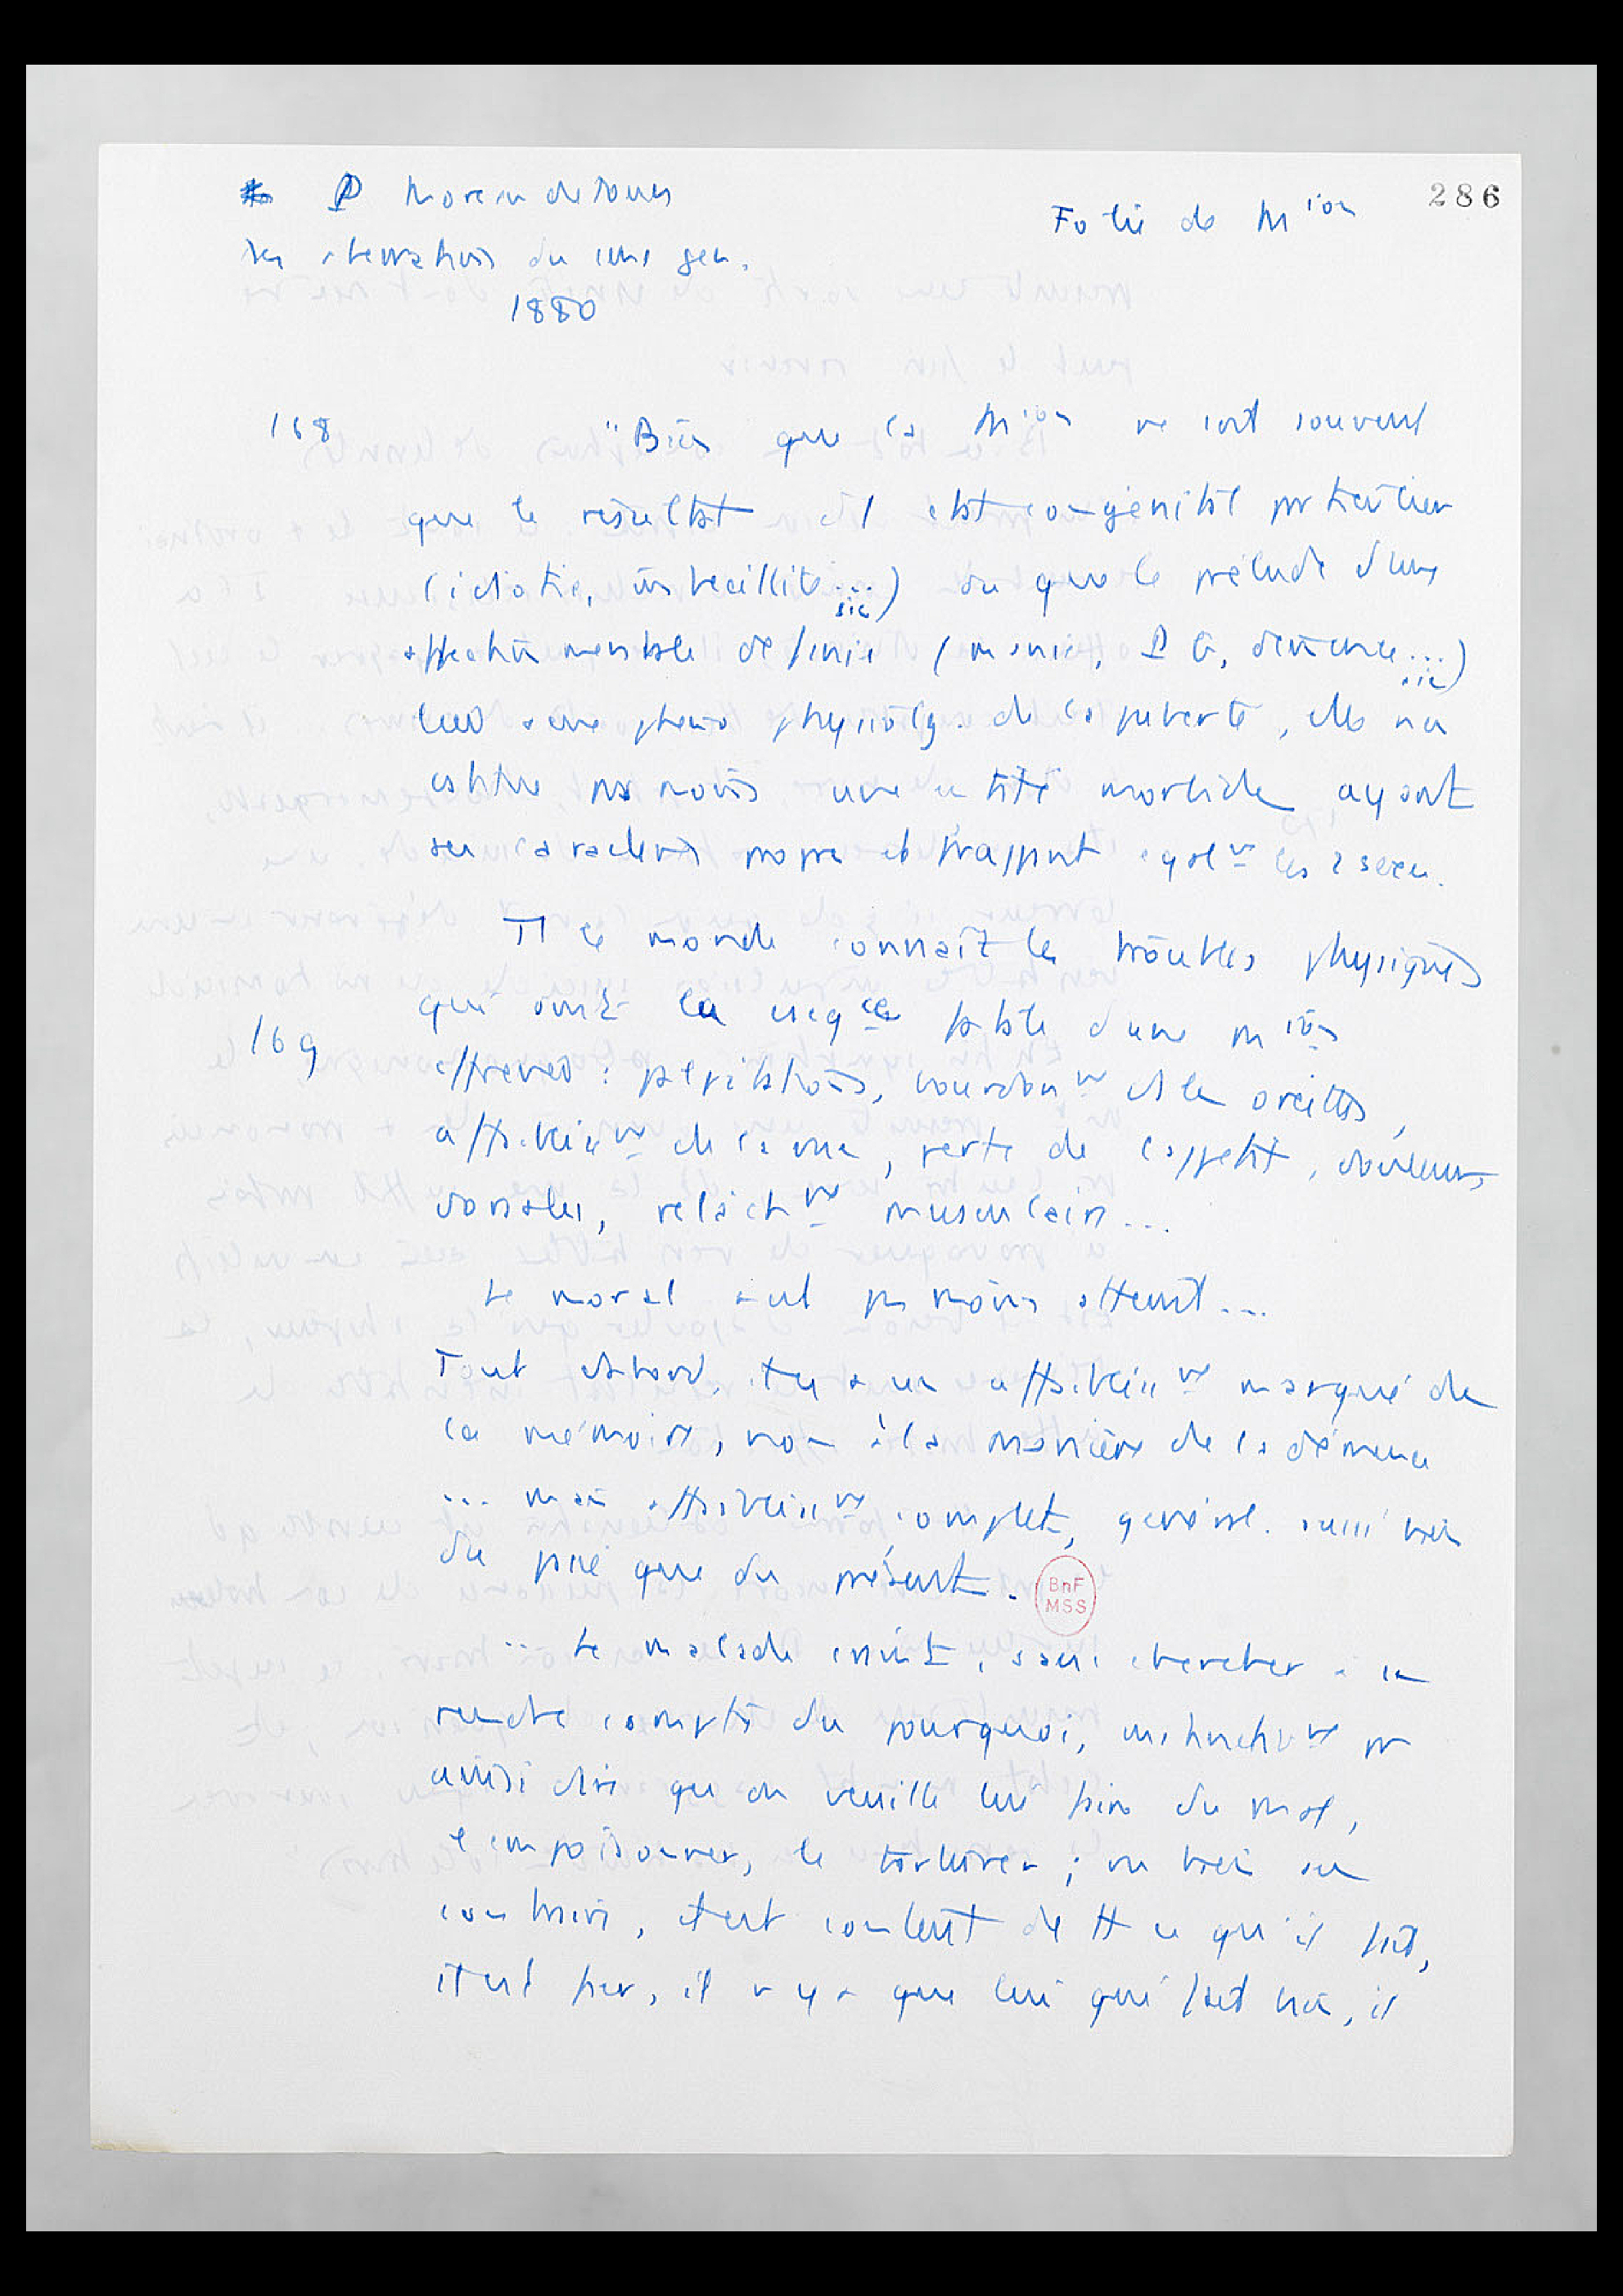 P Moreau de Tours
Folie de M^ion
286
Des aberrations du sens gen.
1880
168
"Bien que la M^ion ne soit souvent
que le résultat d'1 état congénital particulier
(idiotie, imbécillité...) ou que le prélude d'une
sic
affection mentale définie (manie, P G, démence...)
sic
de la puberté, elle n'en
pas moins une entité morbide ayant
ses caractères propres et frappant égal^nt les 2 sexes.
Tt le monde connaît les troubles physiques
qui sont la cseq^ce fatale d'une m^ion
169
effrénée : palpitations, bourdon^nt des oreilles,
affaibliss^nt de la vue, perte de l'appétit, douleurs
dorsales, relâch^nt musculaire...
Le moral est pas moins atteint...
Tout d'abord, il y a un affaibliss^nt marqué de
la mémoire, non à la manière de la démence
... mais affaibliss^nt complet, général. aussi bien
du passé que du présent.
BnF
MSS
... Le malade craint, sans chercher à se
rendre compte du pourquoi, instinctiv^nt pr
ainsi dire qu'on veuille lui faire du mal,
l'empoisonner, le torturer ; ou bien au
contraire, il est content de tt ce qu'il fait,
il est fier, il n'y a que lui qui fait bien, il